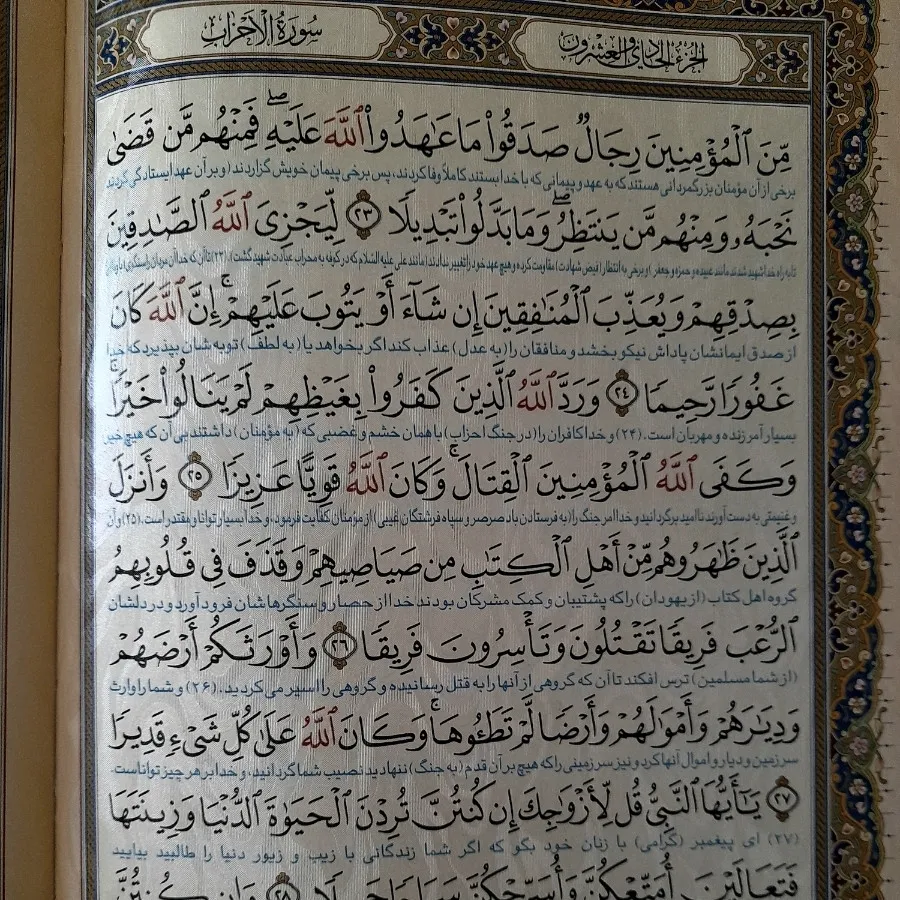 الجزء الحادي والعشرون
سورة الأحزاب
مِّنَ ٱلْمُؤْمِنِينَ رِجَالٌ صَدَقُوا۟ مَا عَٰهَدُوا۟ ٱللَّهَ عَلَيْهِ ۖ فَمِنْهُم مَّن قَضَىٰ
برخی از آن مؤمنان بزرگمردانی هستند که به عهد و پیمانی که با خدا بستند کاملاً وفا کردند، پس برخی پیمان خویش گزاردند (و بر آن عهد ایستادگی کردند
نَحْبَهُۥ وَمِنْهُم مَّن يَنتَظِرُ ۖ وَمَا بَدَّلُوا۟ تَبْدِيلًا ﴿٢٣﴾ لِّيَجْزِىَ ٱللَّهُ ٱلصَّٰدِقِينَ
تا به راه خدا شهید شدند مانند عبیده و حمزه و جعفر) و برخی به انتظار (فیض شهادت) مقاومت کرده و هیچ عهد خود را تغییر ندادند (مانند علی علیه السلام که در کوفه به محراب عبادت شهید گشت). (۲۳) تا آن که خدا آن مردان راستگوی را
بِصِدْقِهِمْ وَيُعَذِّبَ ٱلْمُنَٰفِقِينَ إِن شَآءَ أَوْ يَتُوبَ عَلَيْهِمْ ۚ إِنَّ ٱللَّهَ كَانَ
از صدق ایمانشان پاداش نیکو بخشد و منافقان را (به عدل) عذاب کند اگر بخواهد یا (به لطف) توبه شان بپذیرد که خدا
غَفُورًا رَّحِيمًا ﴿٢٤﴾ وَرَدَّ ٱللَّهُ ٱلَّذِينَ كَفَرُوا۟ بِغَيْظِهِمْ لَمْ يَنَالُوا۟ خَيْرًا ۚ
بسیار آمرزنده و مهربان است. (۲۴) و خدا کافران را (در جنگ احزاب) با همان خشم و غضبی که (به مؤمنان) داشتند بی آن که هیچ خیر
وَكَفَى ٱللَّهُ ٱلْمُؤْمِنِينَ ٱلْقِتَالَ ۚ وَكَانَ ٱللَّهُ قَوِيًّا عَزِيزًا ﴿٢٥﴾ وَأَنزَلَ
و غنیمتی به دست آورند ناامید برگردانید و خدا امر جنگ را (به فرستادن باد صرصر و سپاه فرشتگان غیبی) از مؤمنان کفایت فرمود، و خدا بسیار توانا و مقتدر است. (۲۵) و آن
ٱلَّذِينَ ظَٰهَرُوهُم مِّنْ أَهْلِ ٱلْكِتَٰبِ مِن صَيَاصِيهِمْ وَقَذَفَ فِى قُلُوبِهِمُ
گروه اهل کتاب (از یهودان) را که پشتیبان و کمک مشرکان بودند خدا از حصار و سنگرها شان فرود آورد و در دلشان
ٱلرُّعْبَ فَرِيقًا تَقْتُلُونَ وَتَأْسِرُونَ فَرِيقًا ﴿٢٦﴾ وَأَوْرَثَكُمْ أَرْضَهُمْ
(از شما مسلمین) ترس افکند تا آن که گروهی از آنها را به قتل رسانیده و گروهی را اسیر می کردید. (۲۶) و شما را وارث
وَدِيَٰرَهُمْ وَأَمْوَٰلَهُمْ وَأَرْضًا لَّمْ تَطَـُٔوهَا ۚ وَكَانَ ٱللَّهُ عَلَىٰ كُلِّ شَىْءٍ قَدِيرًا
سرزمین و دیار و اموال آنها کرد و نیز سرزمینی را که هیچ بر آن قدم (به جنگ) ننهادید نصیب شما گردانید، و خدا بر هر چیز تواناست.
﴿٢٧﴾ يَٰٓأَيُّهَا ٱلنَّبِىُّ قُل لِّأَزْوَٰجِكَ إِن كُنتُنَّ تُرِدْنَ ٱلْحَيَوٰةَ ٱلدُّنْيَا وَزِينَتَهَا
(۲۷) ای پیغمبر (گرامی) با زنان خود بگو که اگر شما زندگانی با زیب و زیور دنیا را طالبید بیایید
فَتَعَالَيْنَ أُمَتِّعْكُنَّ وَأُسَرِّحْكُنَّ سَرَاحًا جَمِيلًا ﴿٢٨﴾ وَإِن كُنتُنَّ